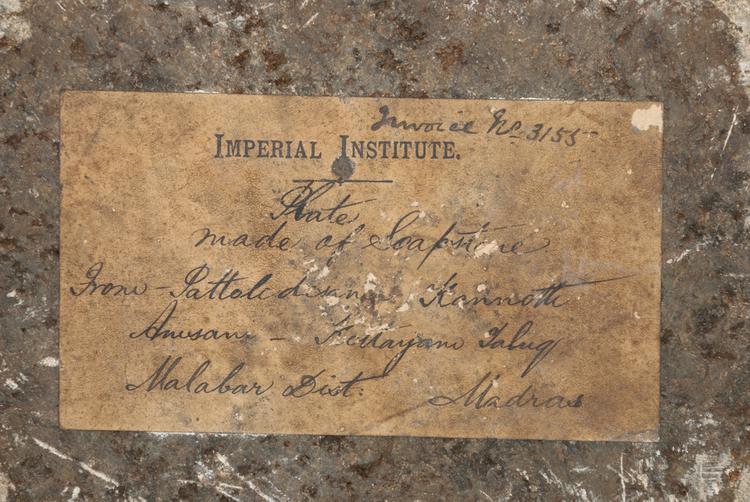 Invoice No. 3155
IMPERIAL INSTITUTE.
Plate
made of Soapstone
From - Kannoth
Amsam - Taluq
Malabar Dist. Madras